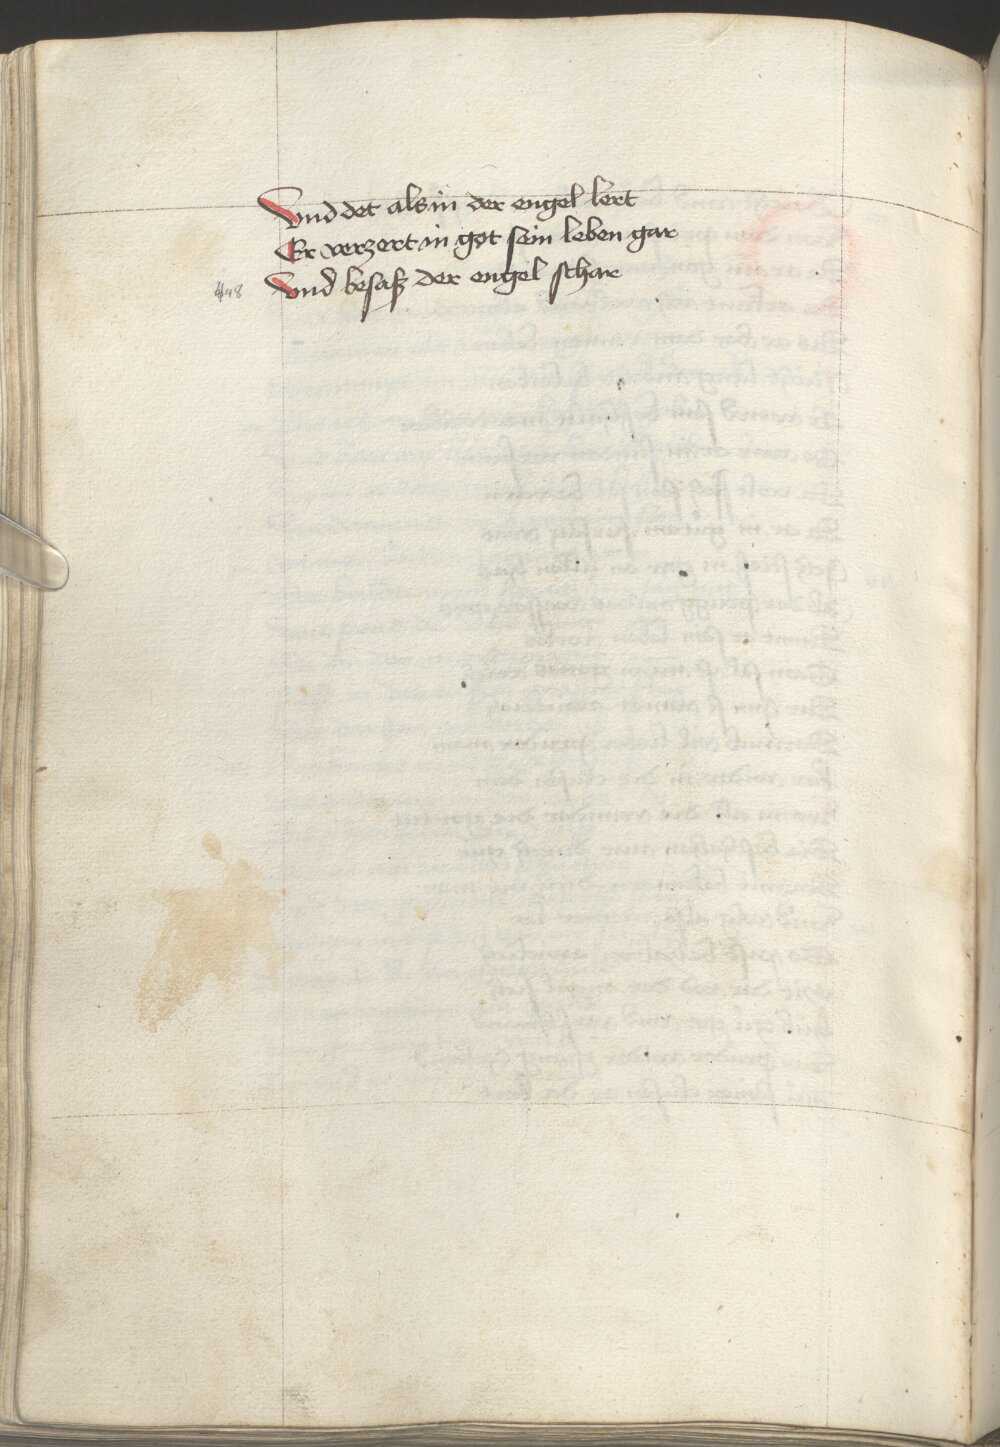 Vnd det als in der engel lert
Er verzert in got sein leben gar
448 Vnd besaß der engel schar